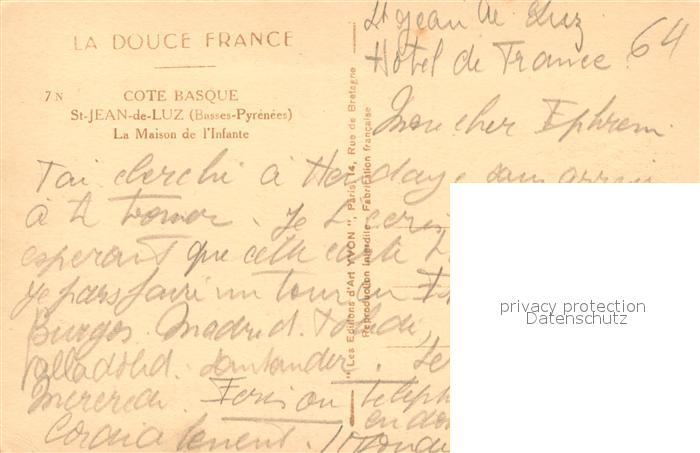 LA DOUCE FRANCE
7 N COTE BASQUE
St-JEAN-de-LUZ (Basses-Pyrénées)
La Maison de l'Infante
"Les Editions d'Art YVON", Paris, 14, Rue de Bretagne
Reproduction Interdite - Fabrication française
St Jean de Luz
Hôtel de France 64
Mon cher Ephrem
J'ai cherché à Hendaye sans
à te trouver. Je t'écris
esperant que cette carte
Je pars faire un tour en
Burgos. Madrid.
Valladolid. Santander.
Mercredi. ou
Cordialement.
privacy protection
Datenschutz